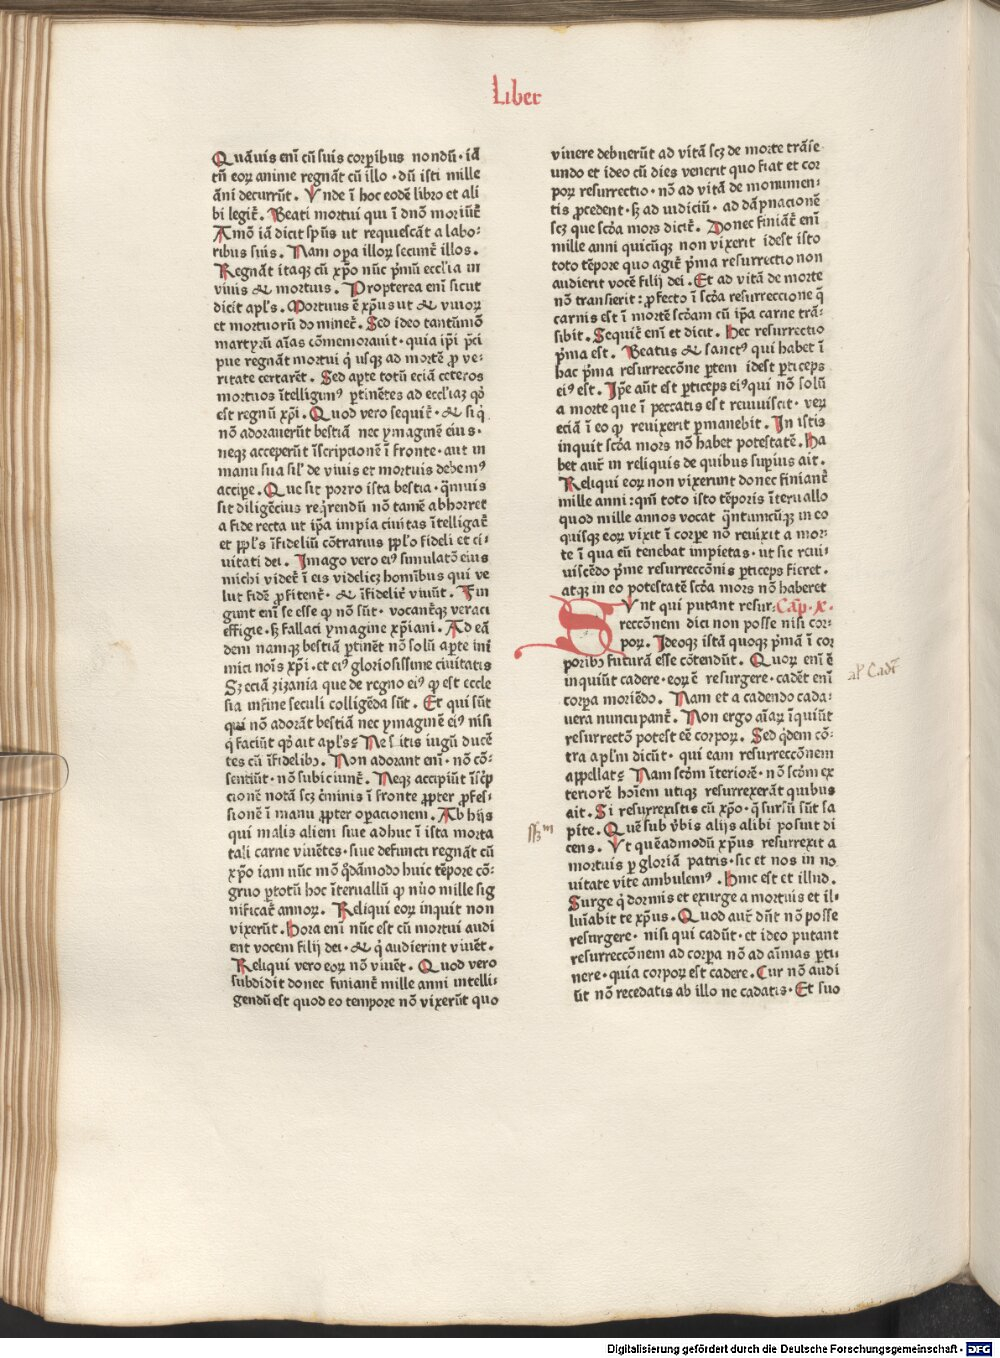 Liber
Quāuis enī cū suis corꝑibus nondū · iā
tn̄ eoꝝ anime regnāt cū illo · dū isti mille
āni decurrūt . Vnde ī hoc eodē libro et ali
bi legit᷑ . Beati mortui qui ī dnō moriūt᷑
Amō iā dicit sp̄us ut requiescāt a labo⸗
ribus suis . Nam oꝑa illoꝝ secunt᷑ illos .
Regnāt itaqꝫ cū xp̄o nūc pͥmū eccl'ia in
viuis ⁊ mortuis . Propterea enī sicut
dicit apl's . Mortuus ē xp̄us ut ⁊ viuoꝝ
et mortuorū dominet᷑ . Sed ideo tantūmō
martyrū aīas cōmemorauit · quia ip̄i pͥci
pue regnāt mortui qͥ usqꝫ ad mortē ꝓ ve⸗
ritate certarēt . Sed aꝑte totū eciā ceteros
mortuos ītelligimꝰ ꝑtinētes ad eccl'iaꝫ qͦ
est regnū xp̄i . Quod vero sequit᷑ · ⁊ si qͥ
nō adorauerūt bestiā nec ymaginē eius ·
neqꝫ acceperūt īscripcionē ī fronte · aut in
manu sua sil' de viuis et mortuis debemꝰ
acciꝑe . Que sit porro ista bestia · qͣmuis
sit diligēcius reqͥrendū nō tamē abhorret
a fide recta ut ip̄a impia ciuitas ītelligat᷑
et pp̄l's īfideliū cōtrarius pp̄l'o fideli et ci⸗
uitati dei . Imago vero eiꝰ simulatō eius
michi videt᷑ ī eis videlicꝫ homībus qui ve
lut fidē ꝓfitent᷑ · ⁊ īfidelit᷑ viuūt . Fin
gunt enī se esse qͦ nō sūt · vocant᷑qꝫ veraci
effigie · sꝫ fallaci ymagine xp̄iani . Ad eā
dem namqꝫ bestiā ꝑtinēt nō solū aꝑte inī
mici noīs xp̄i · et eiꝰ gloriosissime ciuitatis
Sꝫ eciā zizania que de regno eiꝰ qͦ est eccle
sia in fine seculi colligēda sūt . Et qui sūt
qui nō adorāt bestiā nec ymaginē eiꝰ nisi
qͥ faciūt qͦ ait apl's Ne sitis iugū ducē
tes cū īfidelibꝫ . Non adorant enī · nō cō⸗
sentiūt · nō subiciunt᷑ . Neqꝫ accipiūt īscͥp
cionē notā scꝫ cͥminis ī fronte ꝓpter ꝓfes⸗
sionē ī manu ꝓpter oꝑacionem . Ab hijs
qui malis alieni siue adhuc ī ista morta
tali carne viuētes · siue defuncti regnāt cū
xp̄o iam nūc mō qͦdāmodo huic tēpore cō⸗
gruo ꝑ totū hoc īteruallū qͦ nūo mille sig
nificat᷑ annoꝝ . Reliqui eoꝝ inquit non
vixerūt . Hora enī nūc est cū mortui audi
ent vocem filij dei · ⁊ qͥ audierint viuēt .
Reliqui vero eoꝝ nō viuēt . Quod vero
subdidit donec finiant᷑ mille anni intelli⸗
gendū est quod eo tempore nō vixerūt quo
viuere debuerūt ad vitā scꝫ de morte trāse
undo et ideo cū dies venerit quo fiat et cor
poꝝ resurrectio · nō ad vitā de monumen⸗
tis ꝓcedent · sꝫ ad iudiciū · ad dāpnacionē
scꝫ que scd̄a mors dicit᷑ . Donec finiāt᷑ enī
mille anni quicūqꝫ non vixerit idest isto
toto tēpore quo agit᷑ pͥma resurrectio non
audierit vocē filij dei . Et ad vitā de morte
nō transierit : ꝓfecto ī scd̄a resurreccione q̄
carnis est ī mortē scd̄am cū ip̄a carne trā⸗
sibit . Sequit᷑ enī et dicit . Hec resurrectio
pͥma est . Beatus ⁊ sanctꝰ qui habet ī
hac pͥma resurreccōne ꝑtem idest ꝑticeps
eiꝰ est . Ip̄e aūt est ꝑticeps eiꝰ qui nō solū
a morte que ī peccatis est reuiuiscit · veꝝ
eciā ī eo qͦ reuixerit ꝑmanebit . In istis
inquit scd̄a mors nō habet potestatē . Ha
bet aut̄ in reliquis de quibus suꝑius ait .
Reliqui eoꝝ non vixerunt donec finiant᷑
mille anni : qm̄ toto isto tēporis īteruallo
quod mille annos vocat qͣntumcūqꝫ in eo
quisqꝫ eoꝝ vixit ī corꝑe nō reuixit a mor⸗
te ī qua eū tenebat impietas · ut sic reui⸗
uiscēdo pͥme resurreccōnis ꝑticeps fieret .
atqꝫ in eo potestatē scd̄a mors nō haberet
SVnt qui putant resur⸗ Cap̄ · x ·
reccōnem dici non posse nisi cor⸗
poꝝ . Ideoqꝫ istā quoqꝫ pͥmā ī cor
poribꝫ futurā esse cōtendūt . Quoꝝ enī ē
inquiūt cadere · eoꝝ ē resurgere · cadēt enī
corꝑa moriēdo . Nam et a cadendo cada⸗
uera nuncupant᷑ . Non ergo aīaꝝ īquiūt
resurrectō potest eē corpoꝝ . Sed qͥdem cō⸗
tra apl'm dicūt · qui eam resurreccōnem
appellat Nam scd̄m īteriorē · nō scd̄m ex
teriorē hoīem utiqꝫ resurrexerāt quibus
ait . Si resurrexistis cū xp̄o · q̄ sursū sūt sa
pite . Quē sub v̄bis alijs alibi posuit di
cens . Vt quēadmodū xp̄us resurrexit a
mortuis ꝑ gloriā patris · sic et nos in no
uitate vite ambulemꝰ . Hinc est et illud .
Surge qͥ dormis et exurge a mortuis et il⸗
luīabit te xp̄us . Quod aut᷑ dn̄t nō posse
resurgere · nisi qui cadūt · et ideo putant
resurreccōnem ad corꝑa nō ad aīmas ꝑti⸗
nere · quia corpoꝝ est cadere . Cur nō audi
ūt nō recedatis ab illo ne cadatis · Et suo
al' Cadēt
Digitalisierung gefördert durch die Deutsche Forschungsgemeinschaft - DFG